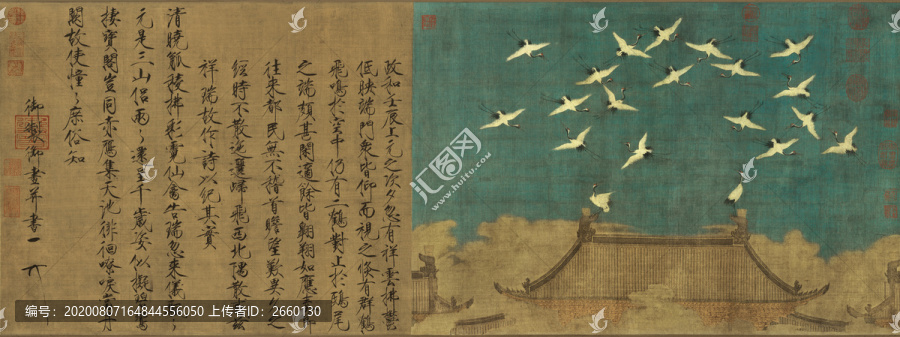 政和壬辰上元之次夕忽有祥雲拂鬱
低映端門衆皆仰而視之倏有群鶴
飛鳴於空中仍有二鶴對止於鴟尾
之端頗甚閑適餘皆翱翔如應奏節
往來都民無不稽首瞻望歎異久之
經時不散迤邐歸飛西北隅散感茲
祥瑞故作詩以紀其實
清曉觚稜拂彩霓仙禽告瑞忽來儀飄々
元是三山侶兩々還呈千歲姿似擬碧鸞
棲寶閣豈同赤鴈集天池徘徊嘹唳當丹
闕故使憧々庶俗知
御製御畫并書
汇图网
www.huitu.com
编号:20200807164844556050 上传者ID: 2660130